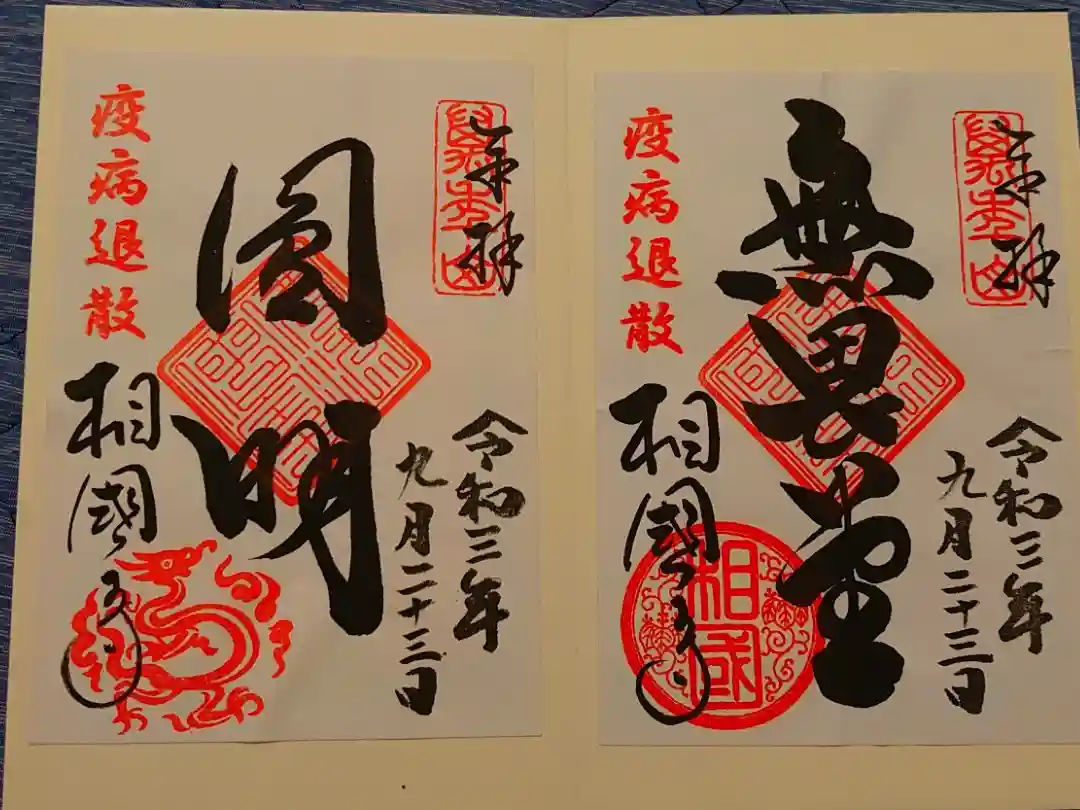 奉拝
萬年山
令和三年
九月二十三日
無畏堂
疫病退散
相國寺
相國
奉拝
萬年山
令和三年
九月二十三日
圓明
疫病退散
相國寺